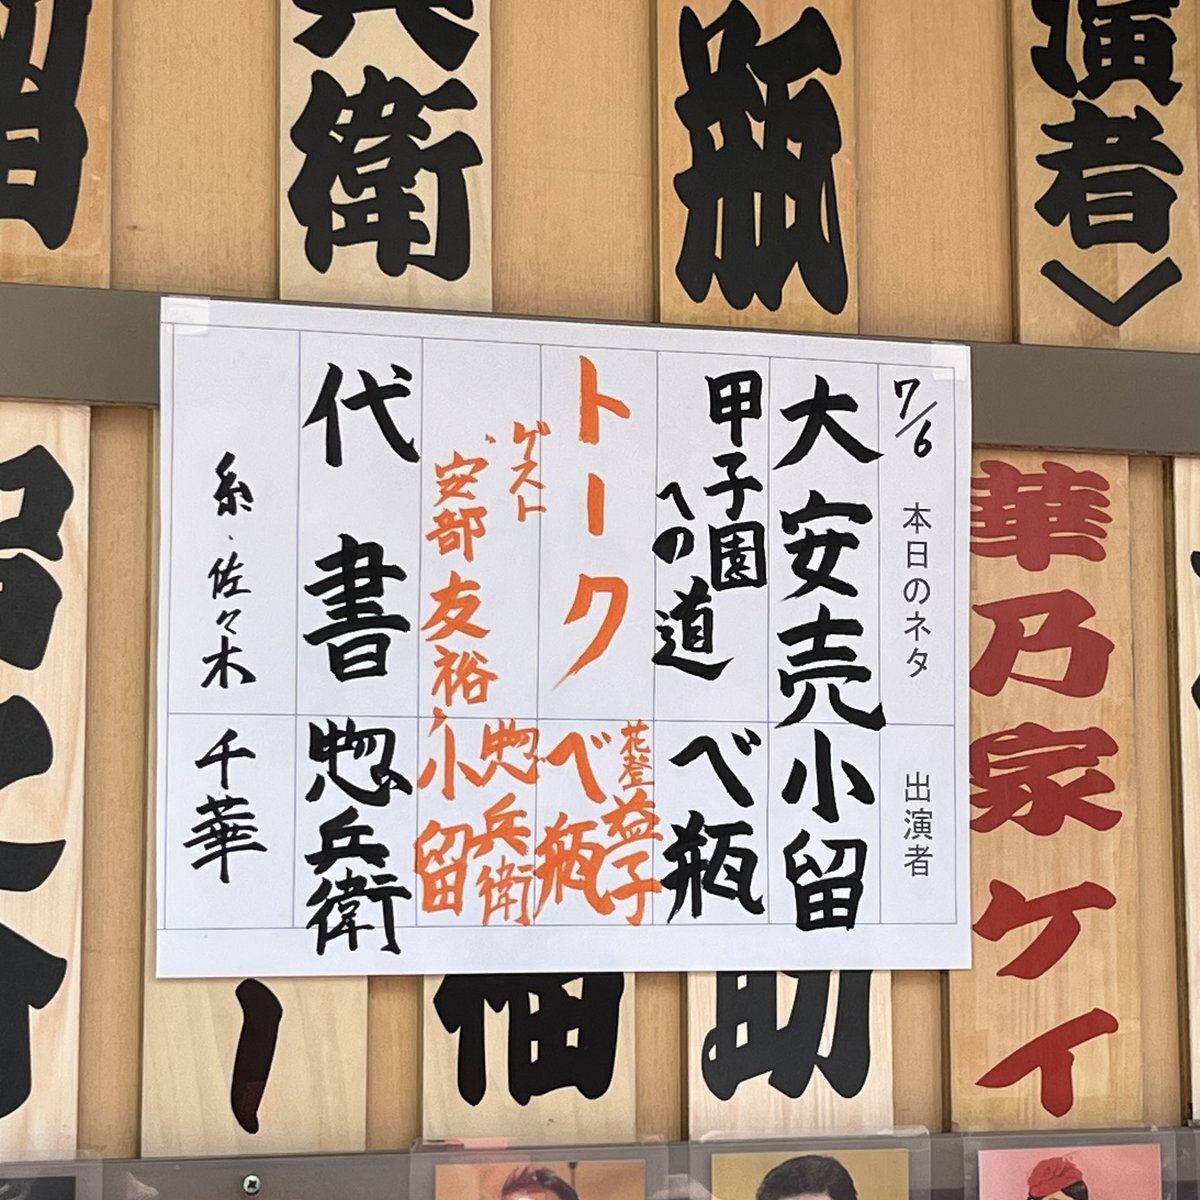 演者〉
瓶
兵衛
留
7/6 本日のネタ 出演者
大安売 小留
甲子園への道 べ瓶
トーク 花登益子 べ瓶
ゲスト、安部友裕、惣兵衛 小留
代書 惣兵衛
糸、佐々木 千華
華乃家ケイ
助